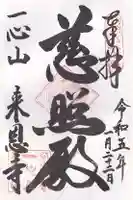 奉拝
令和五年
一月二十二日
慈照殿
一心山
来恩寺